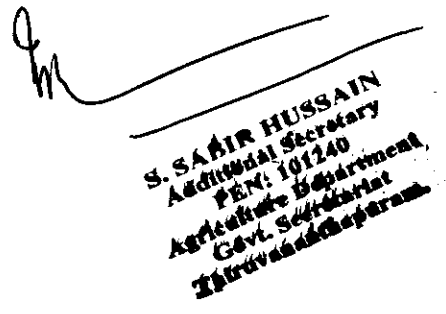 S. SABIR HUSSAIN
Additional Secretary
PEN: 101240
Agriculture Department,
Govt. Secretariat
Thiruvananthapuram.